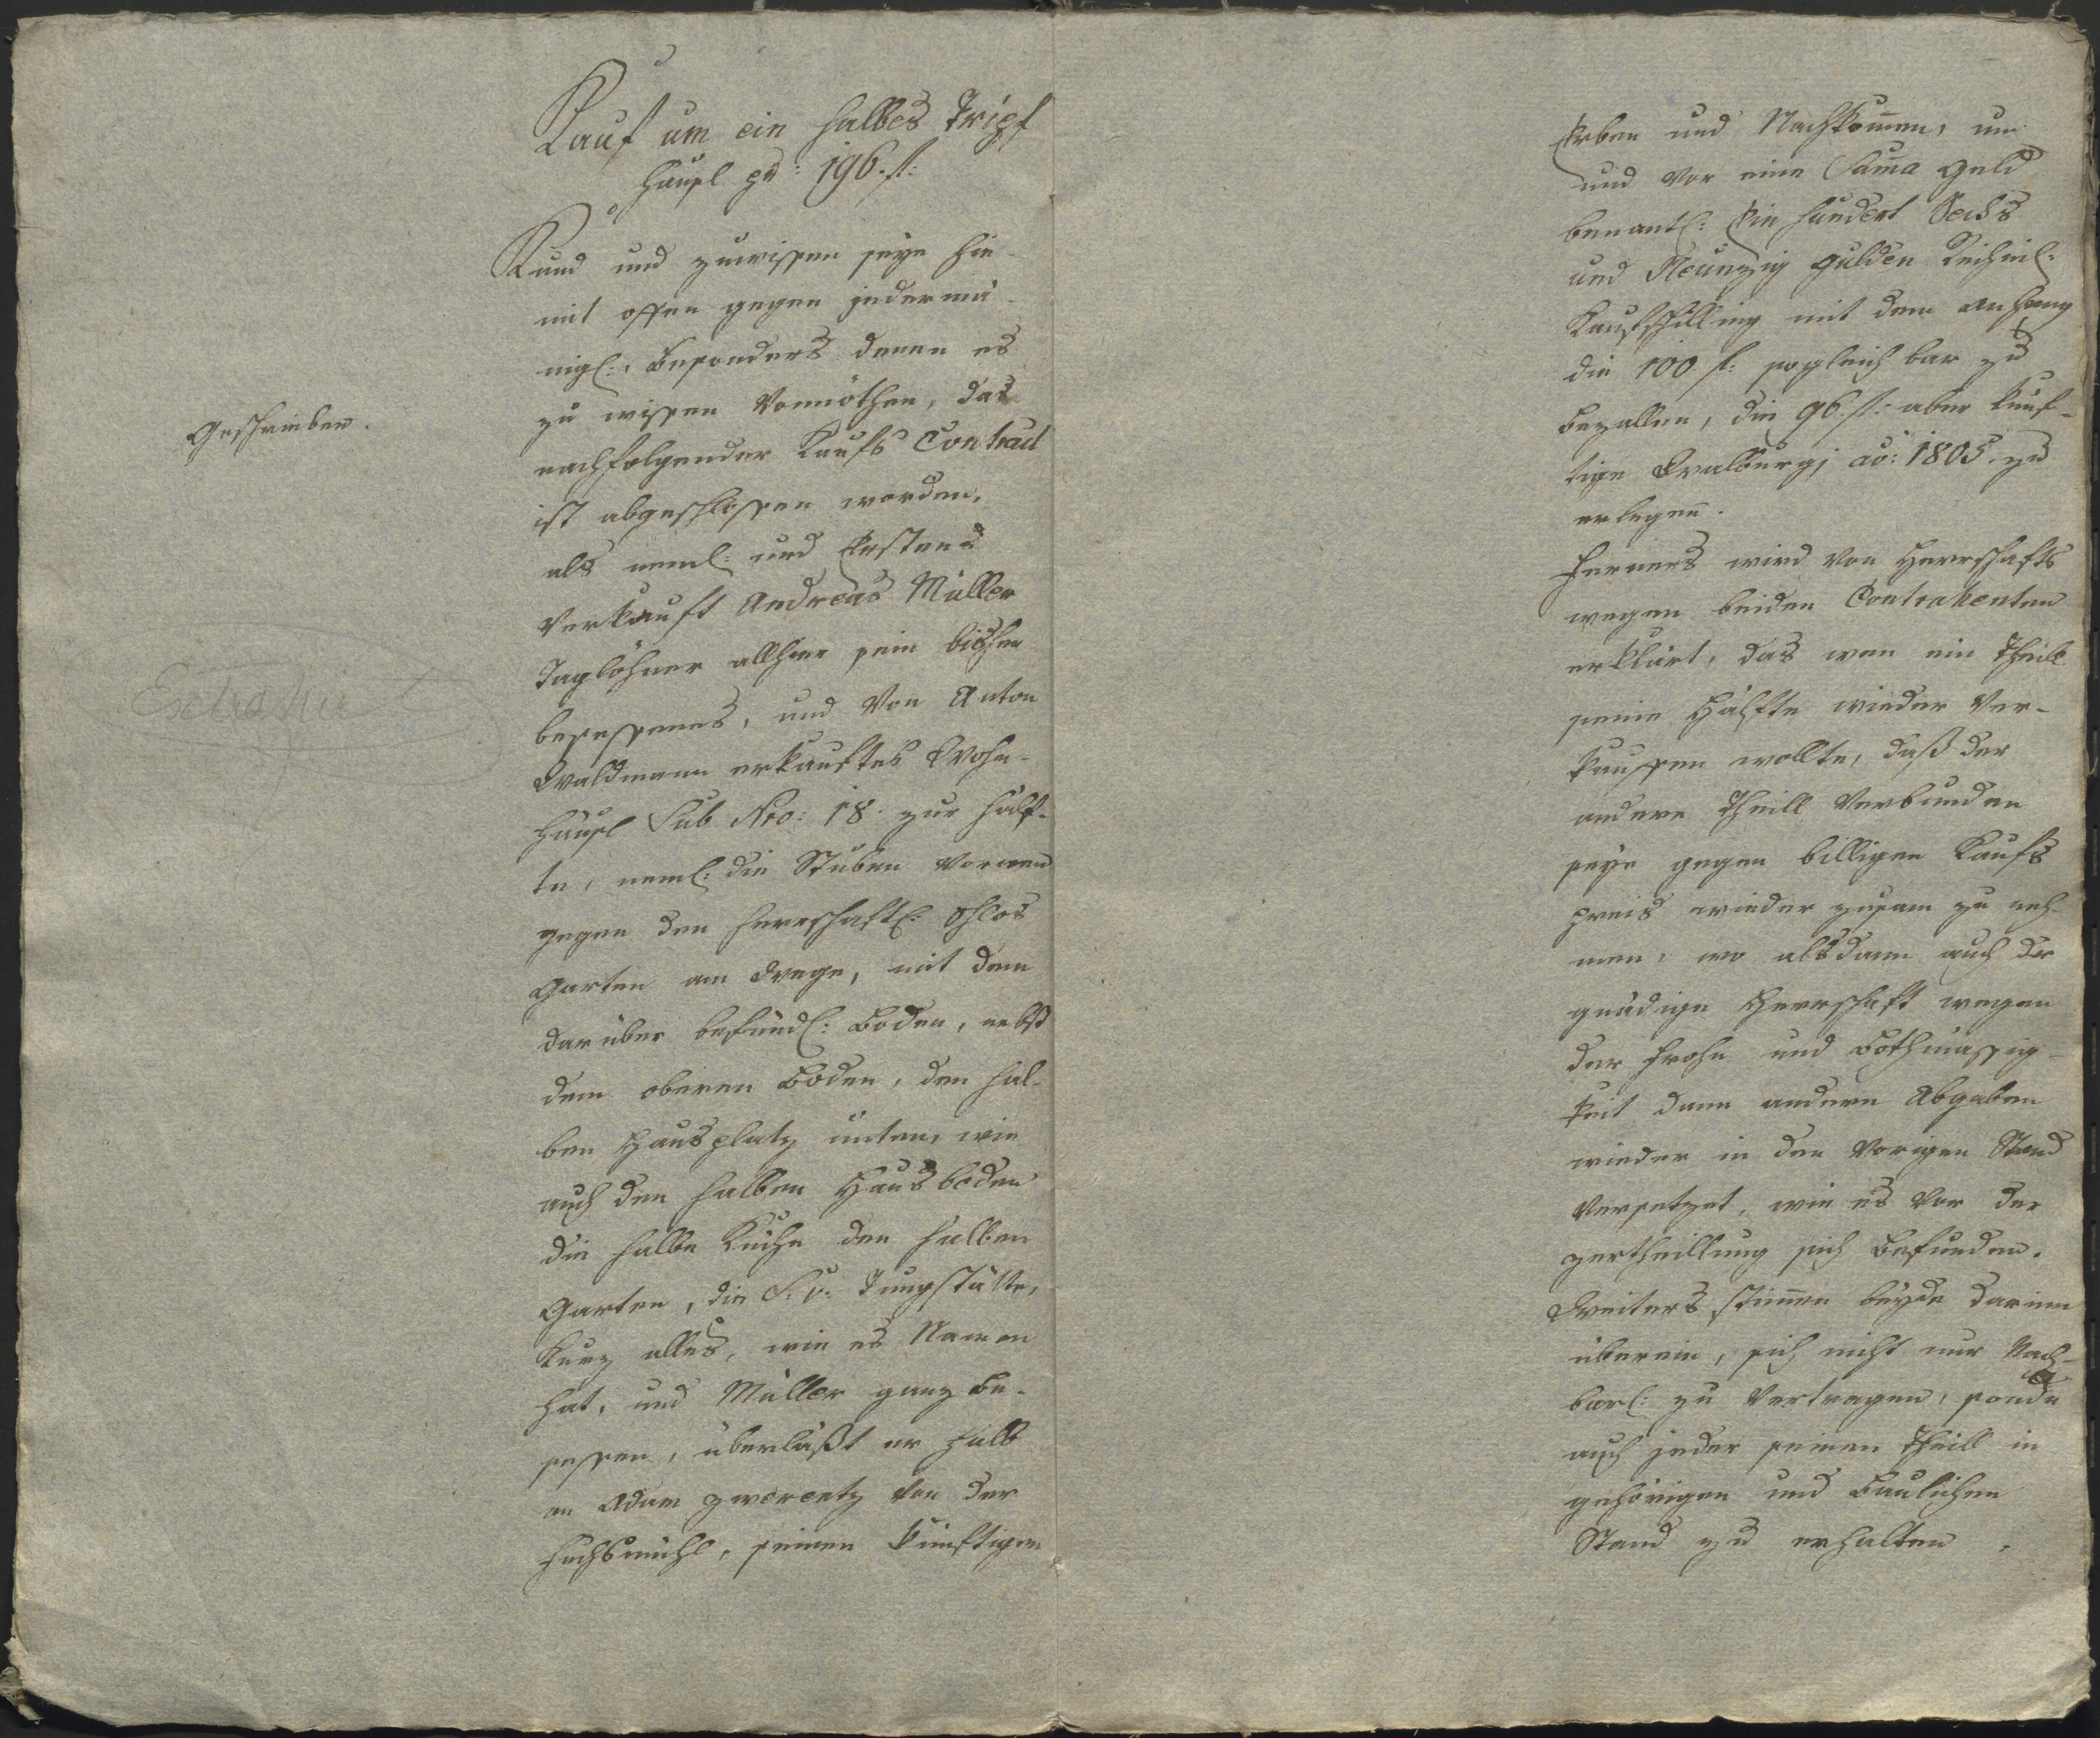 Kauf um ein halbes Tripf
häusl pr: 196. fl:
Kund und zuwissen seye hie-
mit offen gegen jedermä-
nigl:, besonders denen es
zu wissen vonnöthen, das
nachfolgender Kaufs Contract
ist abgeschlossen worden,
als neml: und Erstens
Verkauft Andreas Müller
Taglöhner allhier sein bisher
besessenes, und von Anton
Waldmann erkauftes Wohn-
häusl Sub Nro: 18. zur Hälf-
te, neml: die Stuben vornen
gegen den herrschaftl: Schlos
garten am Wege, mit dem
darüber befindl: Boden, nebst
dem oberen Boden, den hal-
ben Hausplatz unten, wie
auch den halben Hausboden
die halbe Küche den halben
Garten, die S: v: Dungstätte,
kurz alles, wie es Namen
hat, und Müller ganz be-
sessen, überläßt er halb
an Adam von der
Fuchsmühl, seinen künftigen
Geschrieben.
Erben und Nachkomen, um
und vor eine Suma Geld
benantl: Ein hundert Sechs
und Neunzig Gulden Reichnl:
Kaufschilling mit dem Anhang
die 100 fl: sogleich bar zu
bezallen, die 96. fl: aber künf-
tige Walburgj ao: 1805. zu
erlegen.
Ferners wird von Herrschafts
wegen beiden Contrahenten
erklärt, das wen ein Theill
seine Hälfte wieder ver-
kauffen wollte, daß der
andere Theill verbunden
seye gegen billigen Kaufs
preis wieder zusam zu neh-
men, wo alsdann auch der
gnädige Herrschaft wegen
der Frohn und Bothmässig-
keit dann andern Abgaben
wieder in den vorigen Stand
versetzet, wie es vor der
zertheillung sich befunden.
Weiters stimen beyde darinn
überein, sich nicht nur Nach-
barl: zu vertragen, sonder
auch jeder seinen Theill in
gehörigen und baulichen
Stand zu erhalten.